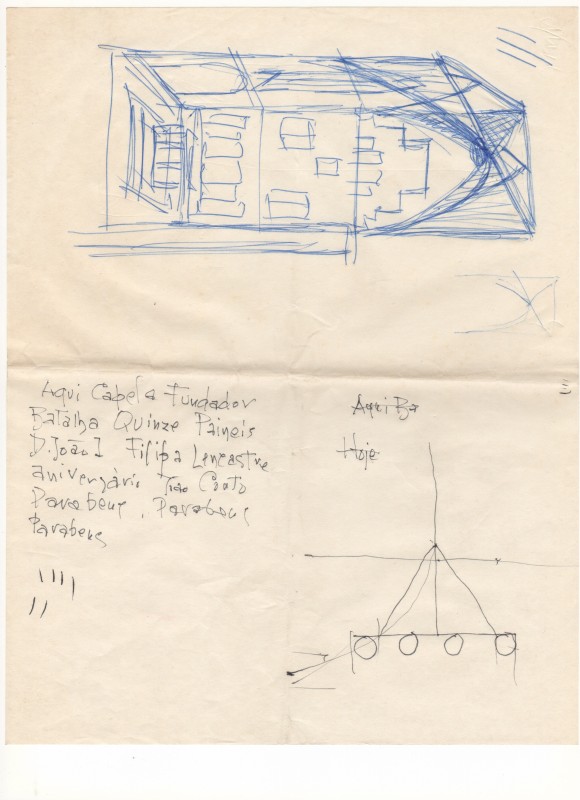 Aqui Capela Fundador
Batalha Quinze Paineis
D. João I Filipa Lencastre
aniversário João Couto
Parabens, Parabens
Parabens
Aqui Ba
Hoje